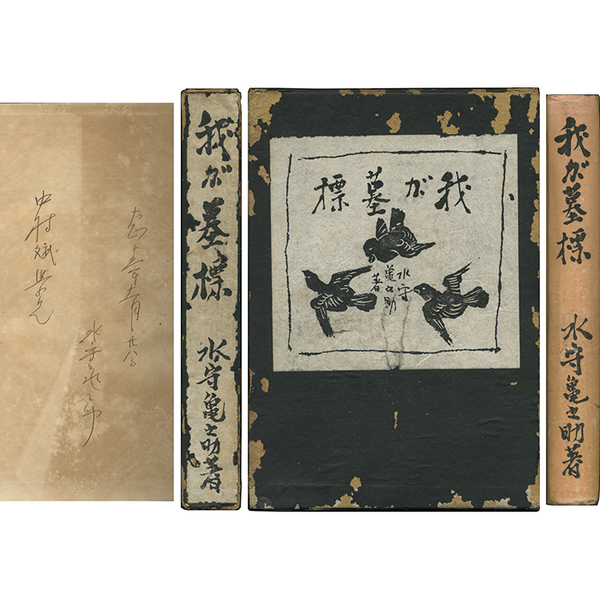 水守亀之助
我が墓標
水守亀之助著
我が墓標
水守
亀之助
著
我が墓標
水守亀之助著